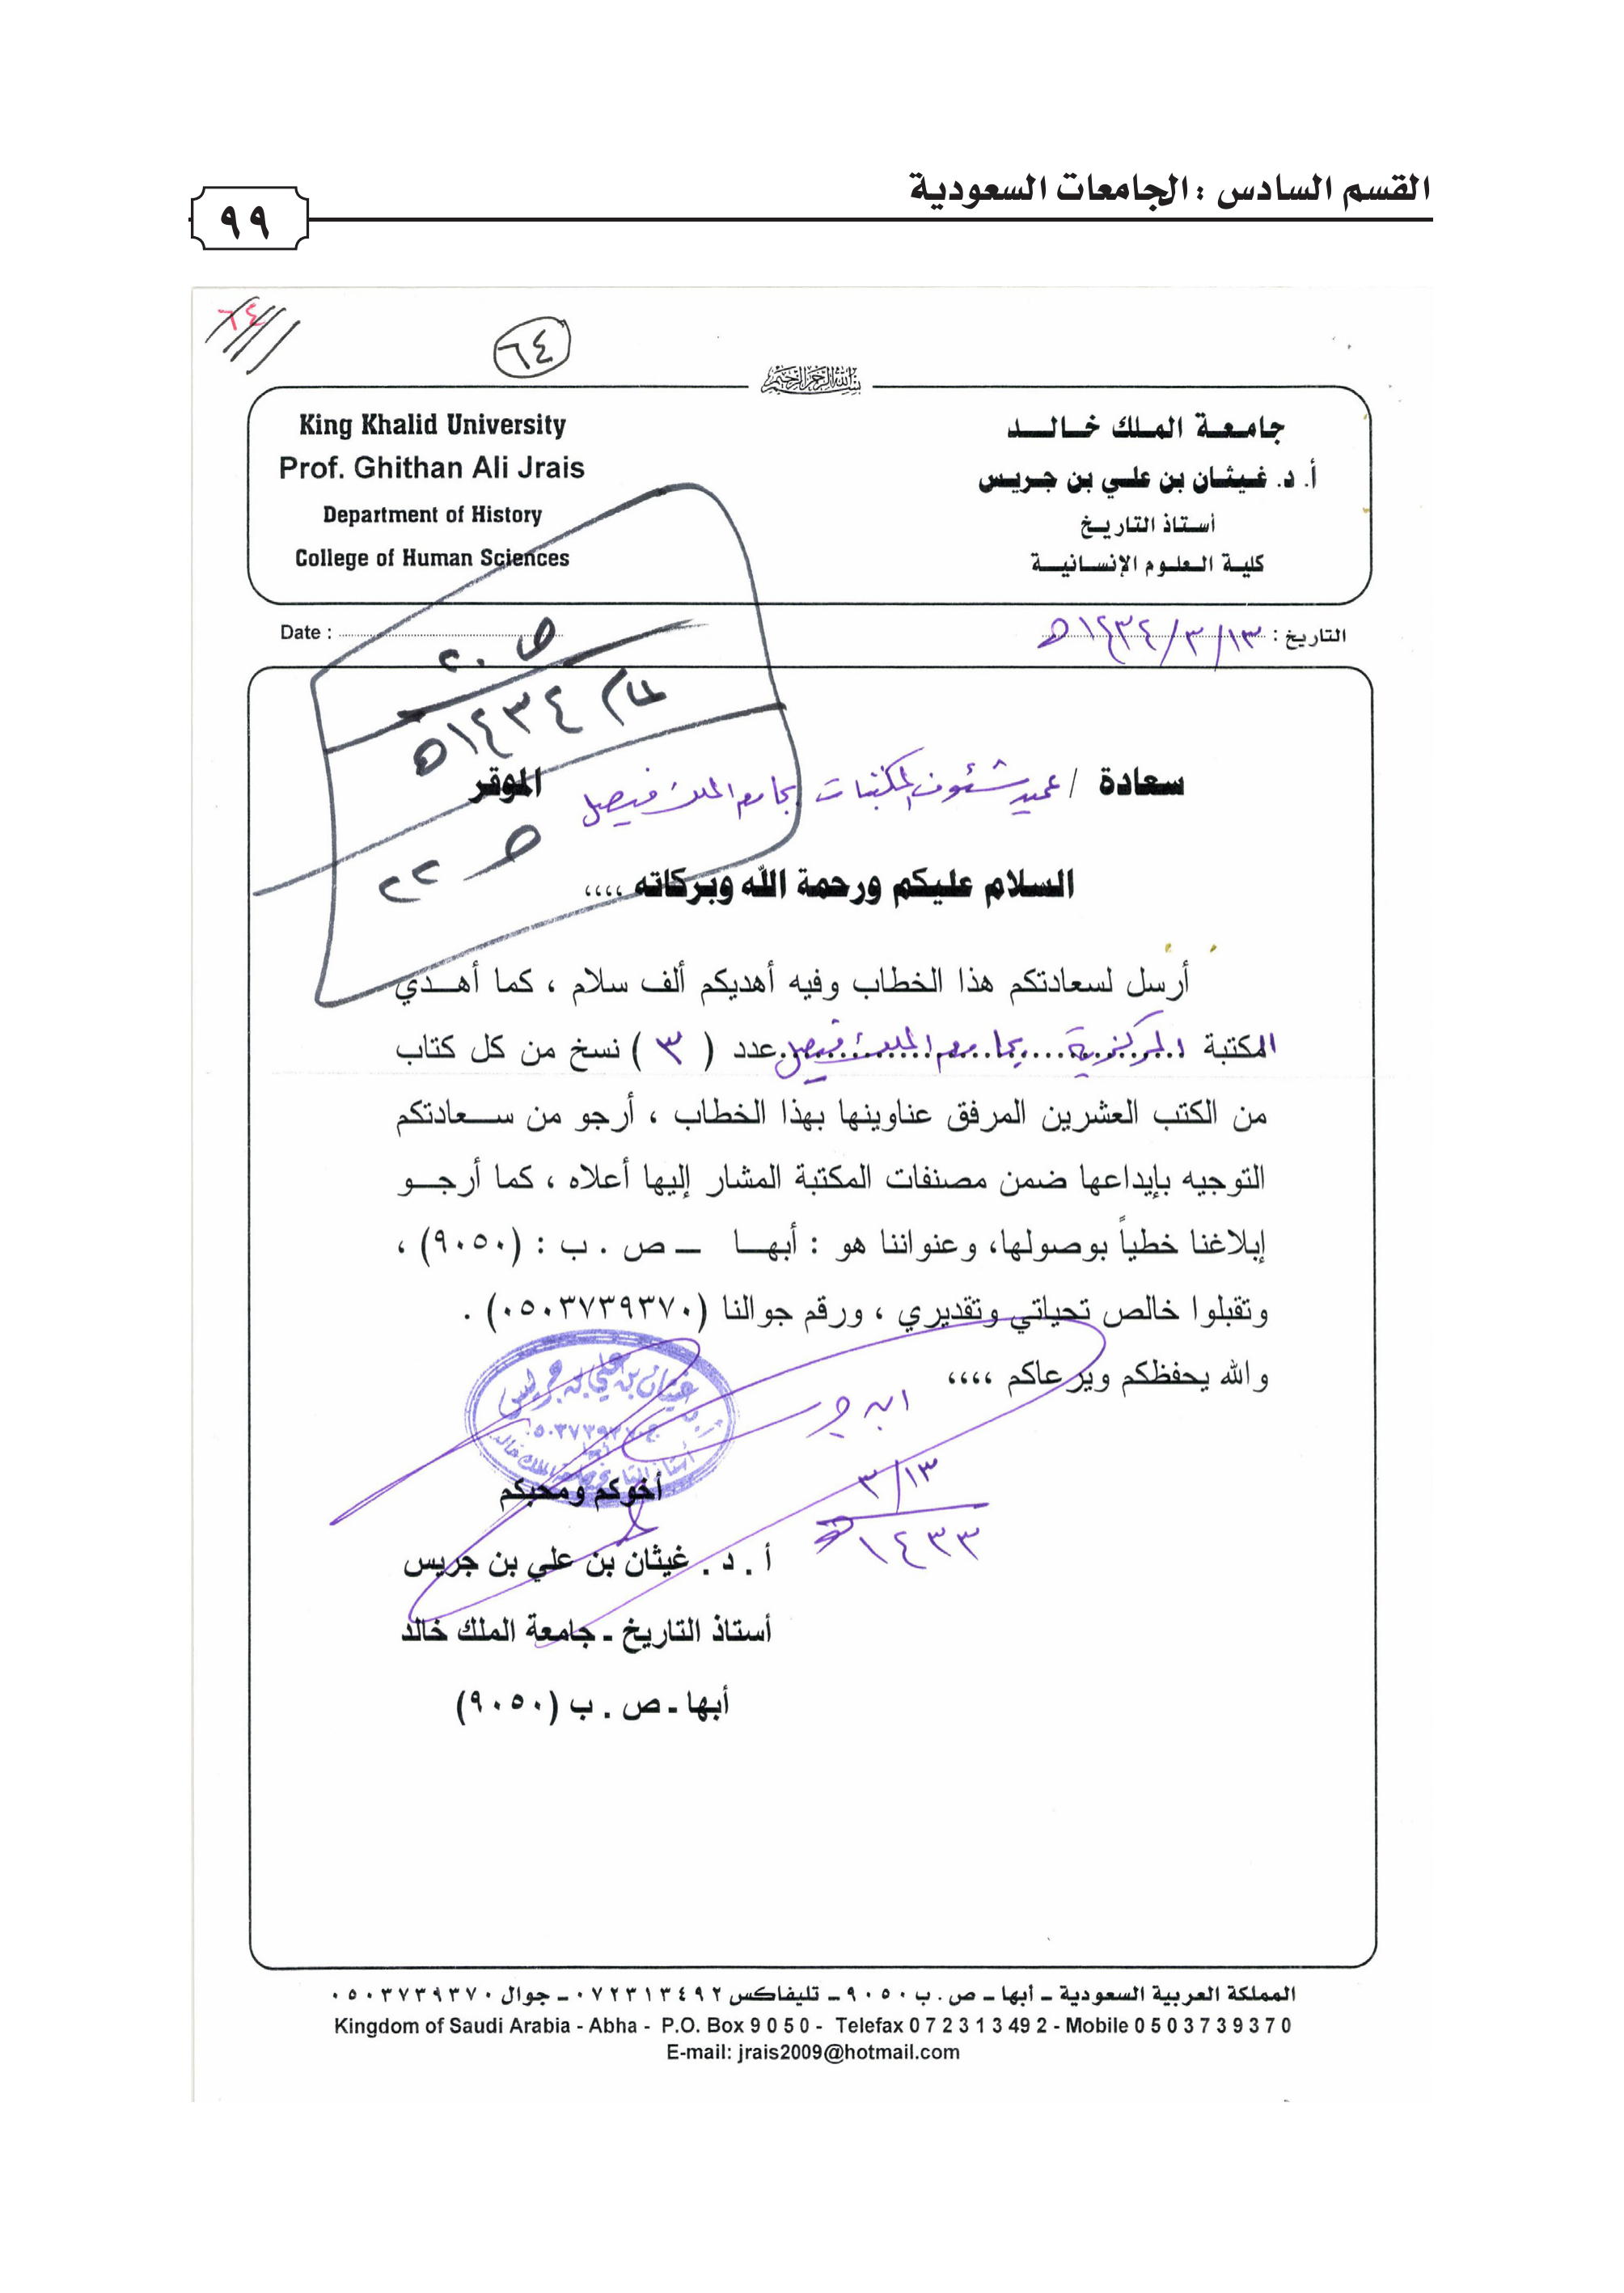 القسم السادس : الجامعات السعودية
٩٩
٦٤
٦٤
بسم الله الرحمن الرحيم
King Khalid University
Prof. Ghithan Ali Jrais
Department of History
College of Human Sciences
جامعة الملك خالد
أ. د. غيثان بن علي بن جريس
أستاذ التاريخ
كلية العلوم الإنسانية
Date :
التاريخ : ١٣/٣/١٤٣٤هـ
عام ١٤٣٤هـ
ص ٢٢
سعادة / عميد شئون المكتبات بجامعة الملك فيصل الموقر
السلام عليكم ورحمة الله وبركاته ،،،،
أرسل لسعادتكم هذا الخطاب وفيه أهديكم ألف سلام ، كما أهدي
المكتبة المركزية بجامعة الملك فيصل عدد ( ٣ ) نسخ من كل كتاب
من الكتب العشرين المرفق عناوينها بهذا الخطاب ، أرجو من سعادتكم
التوجيه بإيداعها ضمن مصنفات المكتبة المشار إليها أعلاه ، كما أرجو
إبلاغنا خطياً بوصولها، وعنواننا هو : أبها – ص . ب : (٩٠٥٠) ،
وتقبلوا خالص تحياتي وتقديري ، ورقم جوالنا (٠٥٠٣٧٣٩٣٧٠) .
والله يحفظكم ويرعاكم ،،،،
أ.د غيثان بن علي بن جريس
أستاذ التاريخ بجامعة الملك خالد
١٣/٣
١٤٣٣هـ
أخوكم ومحبكم
أ . د . غيثان بن علي بن جريس
أستاذ التاريخ ـ جامعة الملك خالد
أبها ـ ص . ب (٩٠٥٠)
المملكة العربية السعودية – أبها – ص . ب ٩٠٥٠ – تليفاكس ٠٧٢٣١٣٤٩٢ – جوال ٠٥٠٣٧٣٩٣٧٠
Kingdom of Saudi Arabia - Abha - P.O. Box 9 0 5 0 - Telefax 0 7 2 3 1 3 49 2 - Mobile 0 5 0 3 7 3 9 3 7 0
E-mail: jrais2009@hotmail.com